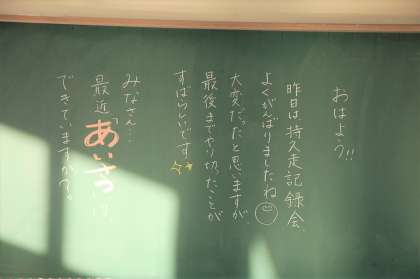 おはよう!!
昨日は持久走記録会、
よくがんばりましたね
大変だったと思いますが、
最後までやり切ったことが
すばらしいです
みなさん…
最近「あいさつ」は、
できていますか?